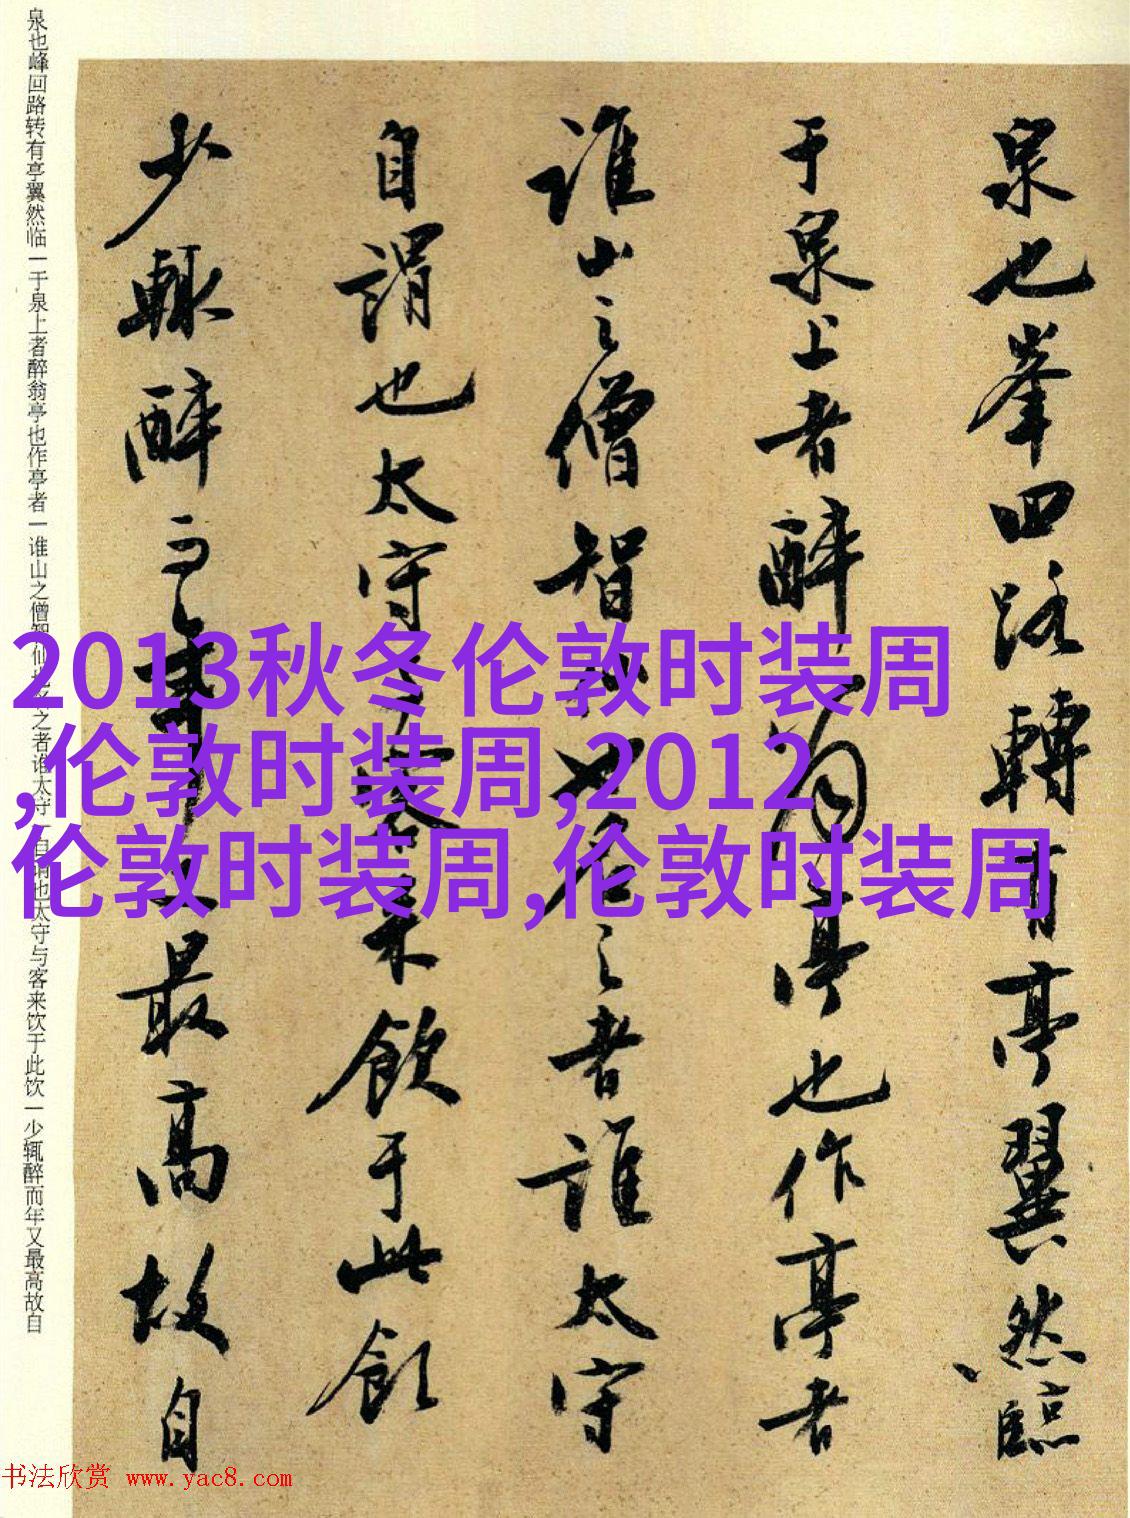 泉也峯回路轉有亭翼然臨
于泉上者醉翁亭也作亭者
誰山之僧智仙也名之者誰太守
自謂也太守与客来飲于此飲
少輒醉而年又最高故自
泉也峰回路转有亭翼然临一于泉上者醉翁亭也作亭者一谁山之僧智仙也名之者谁太守一自谓也太守与客来饮于此饮一少辄醉而年又最高故自
2013秋冬伦敦时装周
,伦敦时装周,2012
伦敦时装周,伦敦时装周
书法欣赏 www.yac8.com